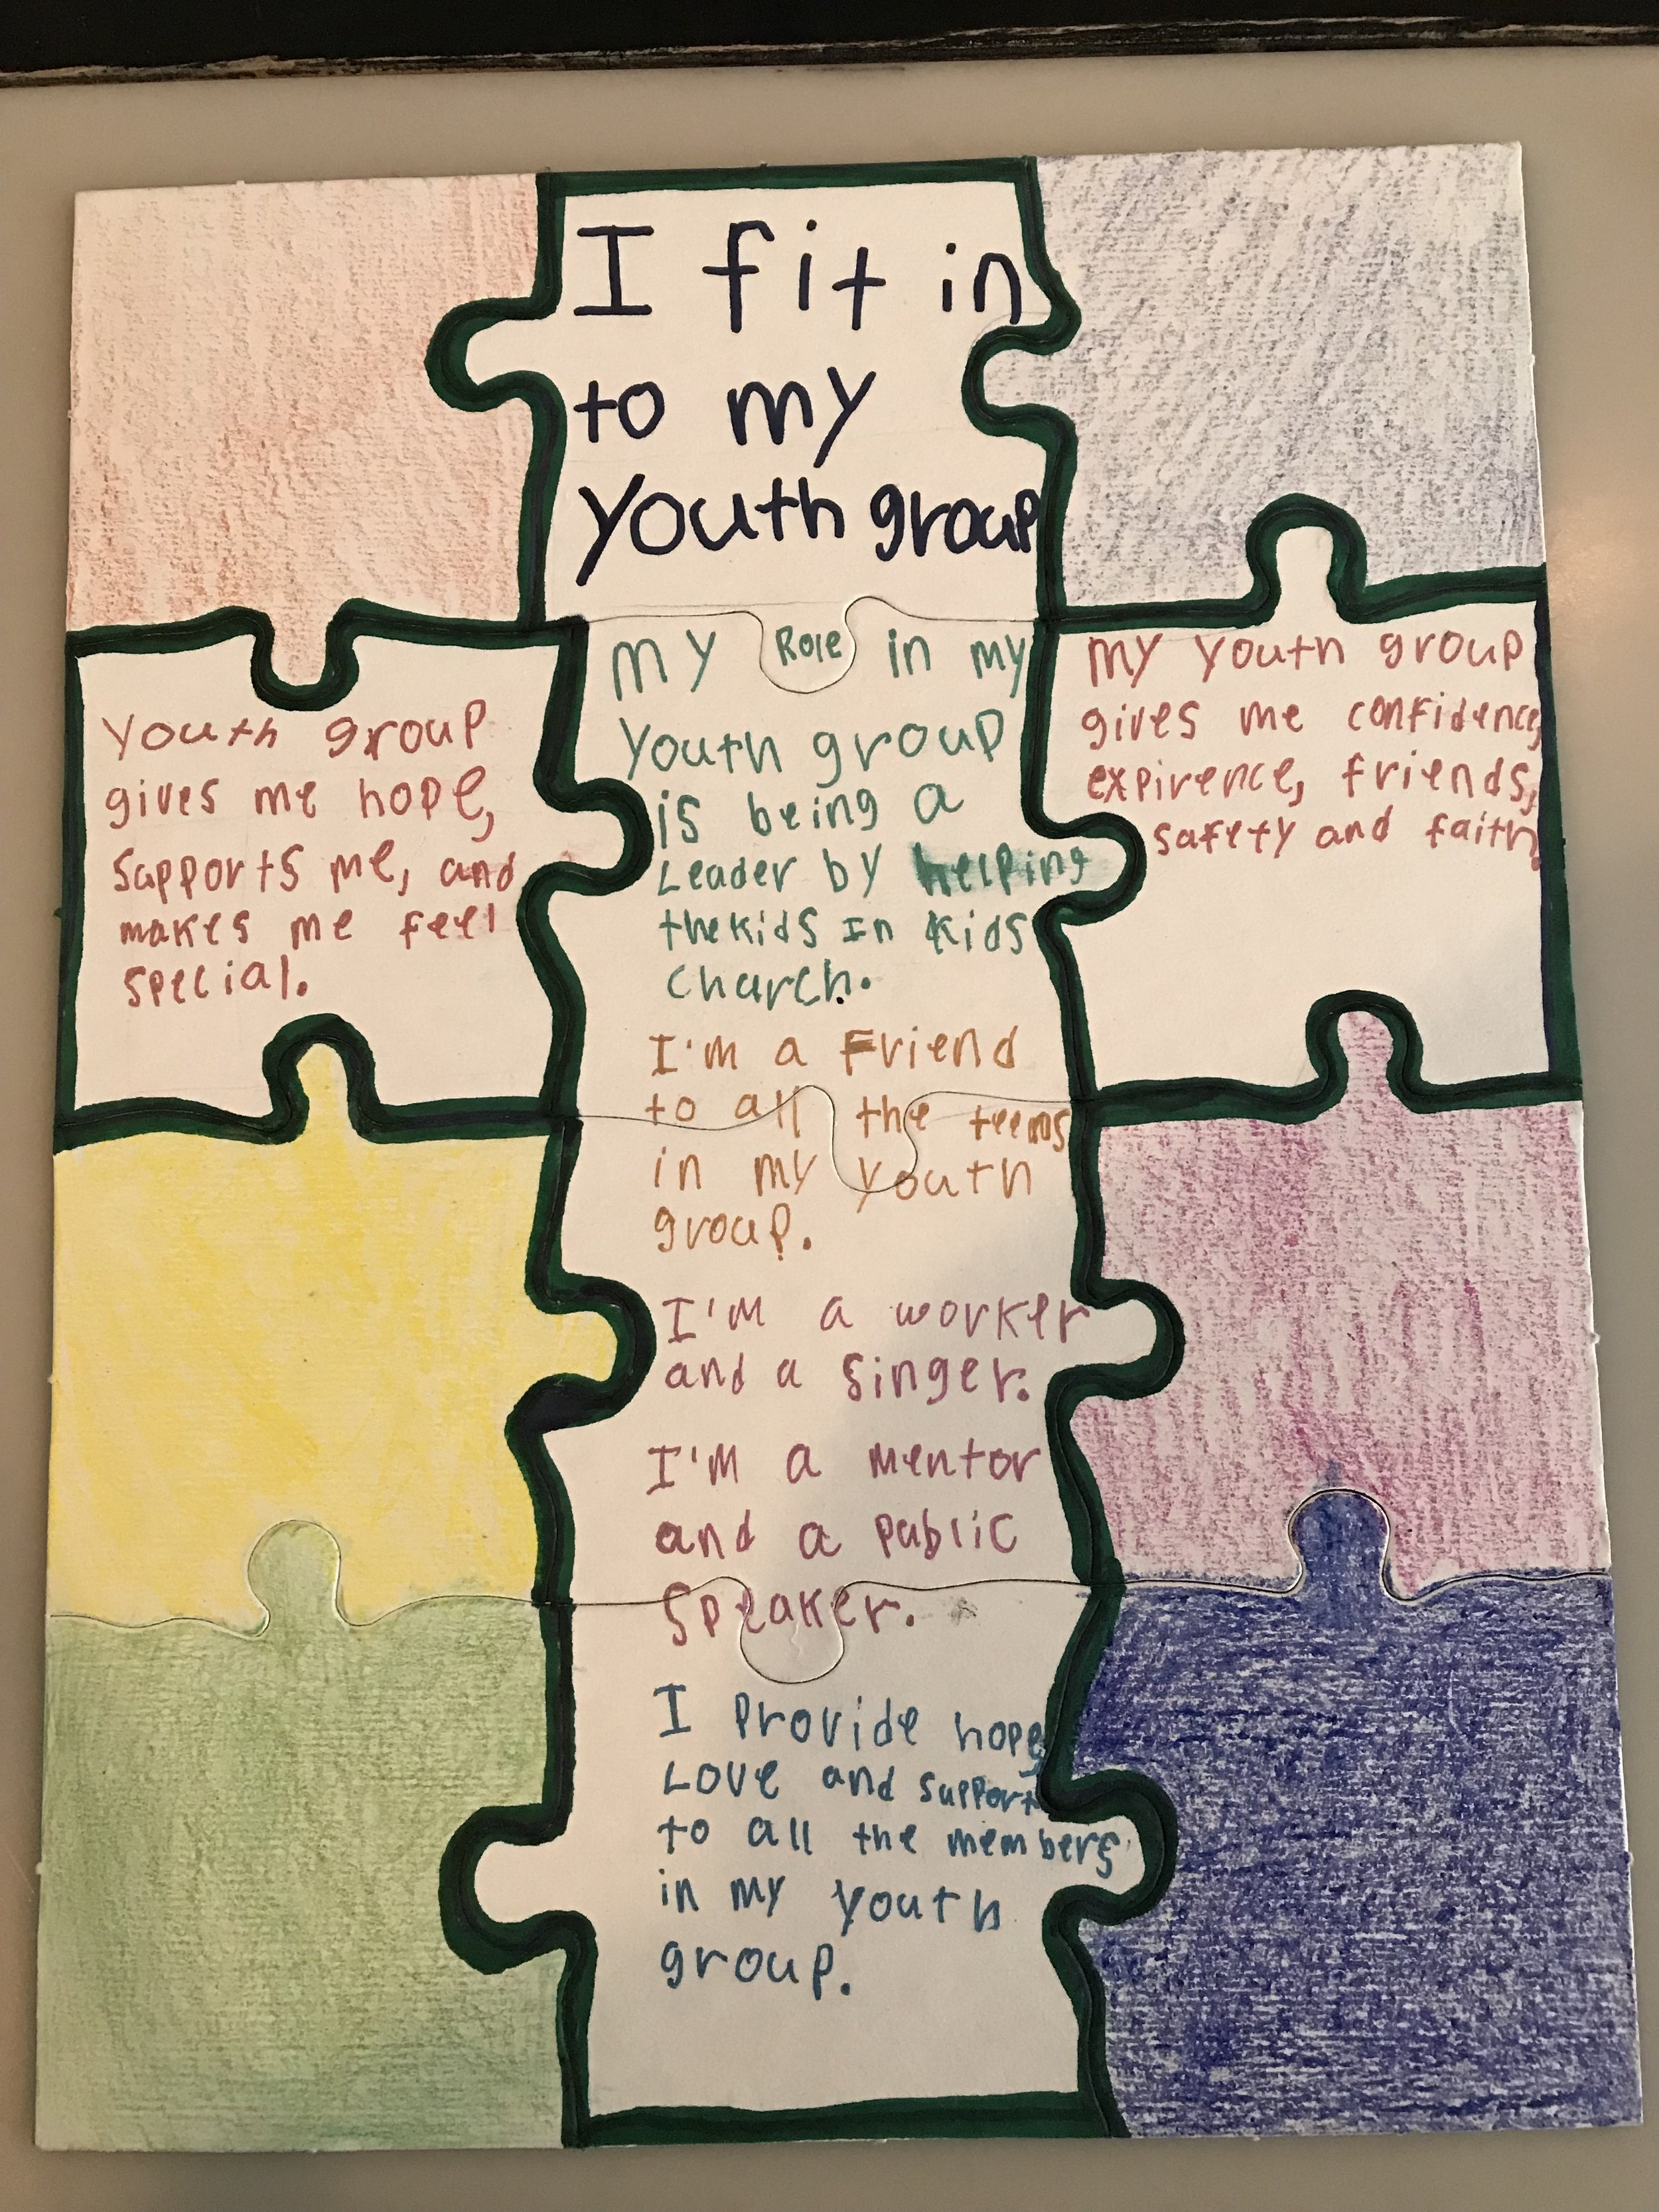 I fit in
to my
youth group
Youth group
gives me hope,
supports me, and
makes me feel
special.
my Role in my
youth group
is being a
Leader by helping
the kids In kids
church.
I'm a Friend
to all the teens
in my youth
group.
I'm a worker
and a singer.
I'm a mentor
and a public
speaker.
I provide hope,
Love and support
to all the members
in my youth
group.
my youth group
gives me confidence,
expirence, friends,
safety and faith.